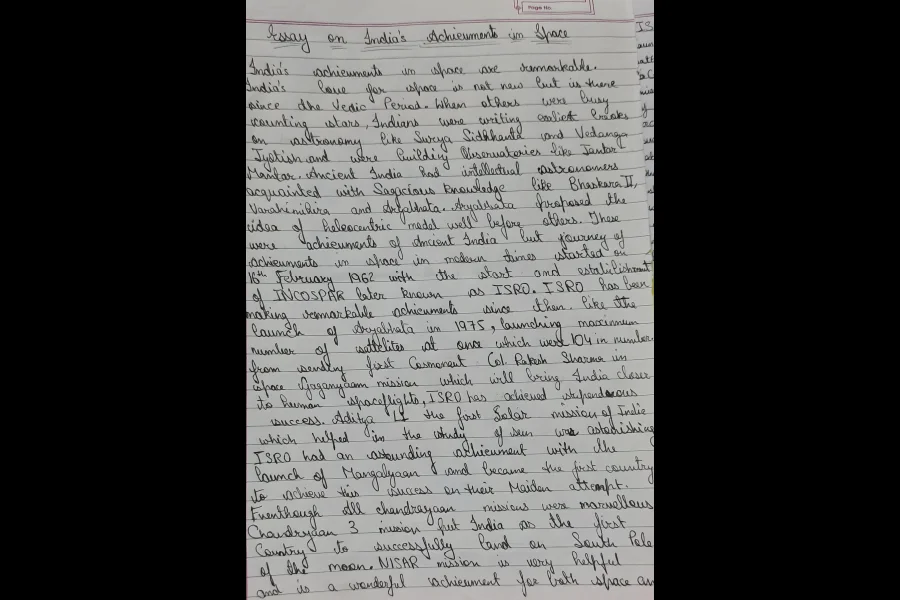 Page No.
Essay on India's Achieuments in Space
India's achieuments in space are remarkable.
India's love for space is not new but is there
since the Vedic Period. When others were busy
counting stars, Indians were writing books
on astronomy like Surya Sidhhanta and Vedanga
Jyotish and were building Observatories like Jantar
Mantar. Ancient India had intellectual astronomers
acquainted with Sagacious knowledge like Bhaskara II,
Varahimihira and Aryabhata. Aryabhata proposed the
idea of heleocentric model well before others. These
were achieuments of Ancient India but journey of
achieuments in space in modern times started on
16th February 1962 with the start and establishment
of INCOSPAR later known as ISRO. ISRO has been
making remarkable achieuments since then like the
launch of Aryabhata in 1975, launching maximum
number of sattelites at once which were 104 in number.
from sending first Cosmonaut Col. Rakesh Sharma in
space Gaganyaam mission which will bring India closer
to human spaceflights, ISRO has achieved stupendous
success. Aditya L1 the first Solar mission of India
which helped in the study of sun was astonishing
ISRO had an astounding achieument with the
launch of Mangalyaan and became the first country
to achieve this success on their Maiden attempt.
Eventhough all chandrayaan missions were marvellous
Chandryaan 3 mission put India as the first
Country to successfully land on South Pole
of the moon. NISAR mission is very helpful
and is a wonderful achieument for both space an